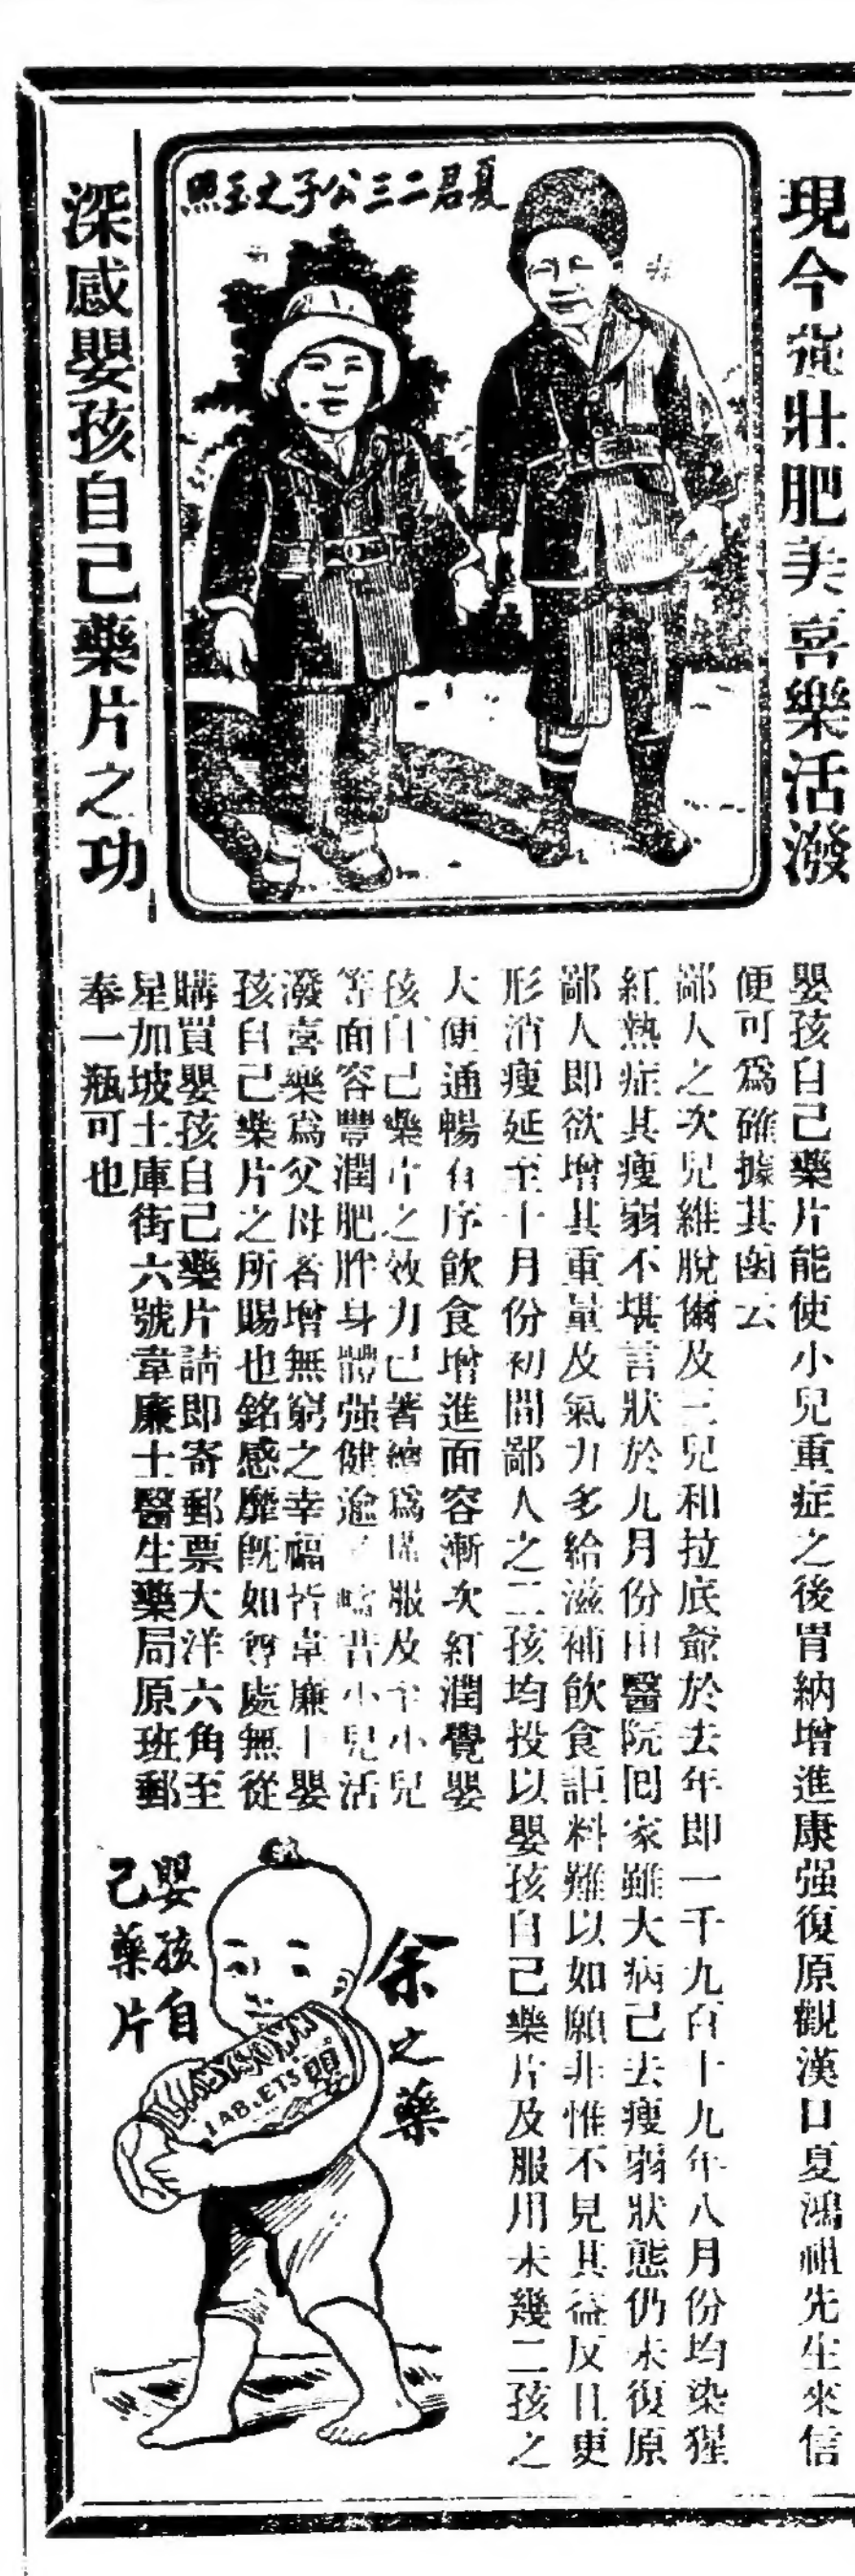 現今強壯肥美喜樂活潑
夏君二三公子之玉照
深感嬰孩自己藥片之功
嬰孩自己藥片能使小兒重症之後胃納增進康强復原觀漢口夏鴻祖先生來信
便可爲確據其函云
鄙人之次兒維脫爾及三兒和拉底爺於去年即一千九百十九年八月份均染猩
紅熱症其瘦弱不堪言狀於九月份由醫院囘家雖大病已去瘦弱狀態仍未復原
鄙人即欲增其重量及氣力多給滋補飲食詎料難以如願非惟不見其益反且更
形消瘦延至十月份初間鄙人之二孩均投以嬰孩自己藥片及服用未幾二孩之
大便通暢有序飲食增進面容漸次紅潤覺嬰
孩自己藥片之效力已著繼爲常服及今小兒
等面容豐潤肥胖身體强健逾昔小兒活
潑喜樂爲父母者增無窮之幸福皆韋廉士嬰
孩自己藥片之所賜也銘感靡旣如尊處無從
購買嬰孩自己藥片請即寄郵票大洋六角至
星加坡土庫街六號韋廉士醫生藥局原班郵
奉一瓶可也
余之藥
嬰孩自
己藥片
BABY'S OWN
TABLETS